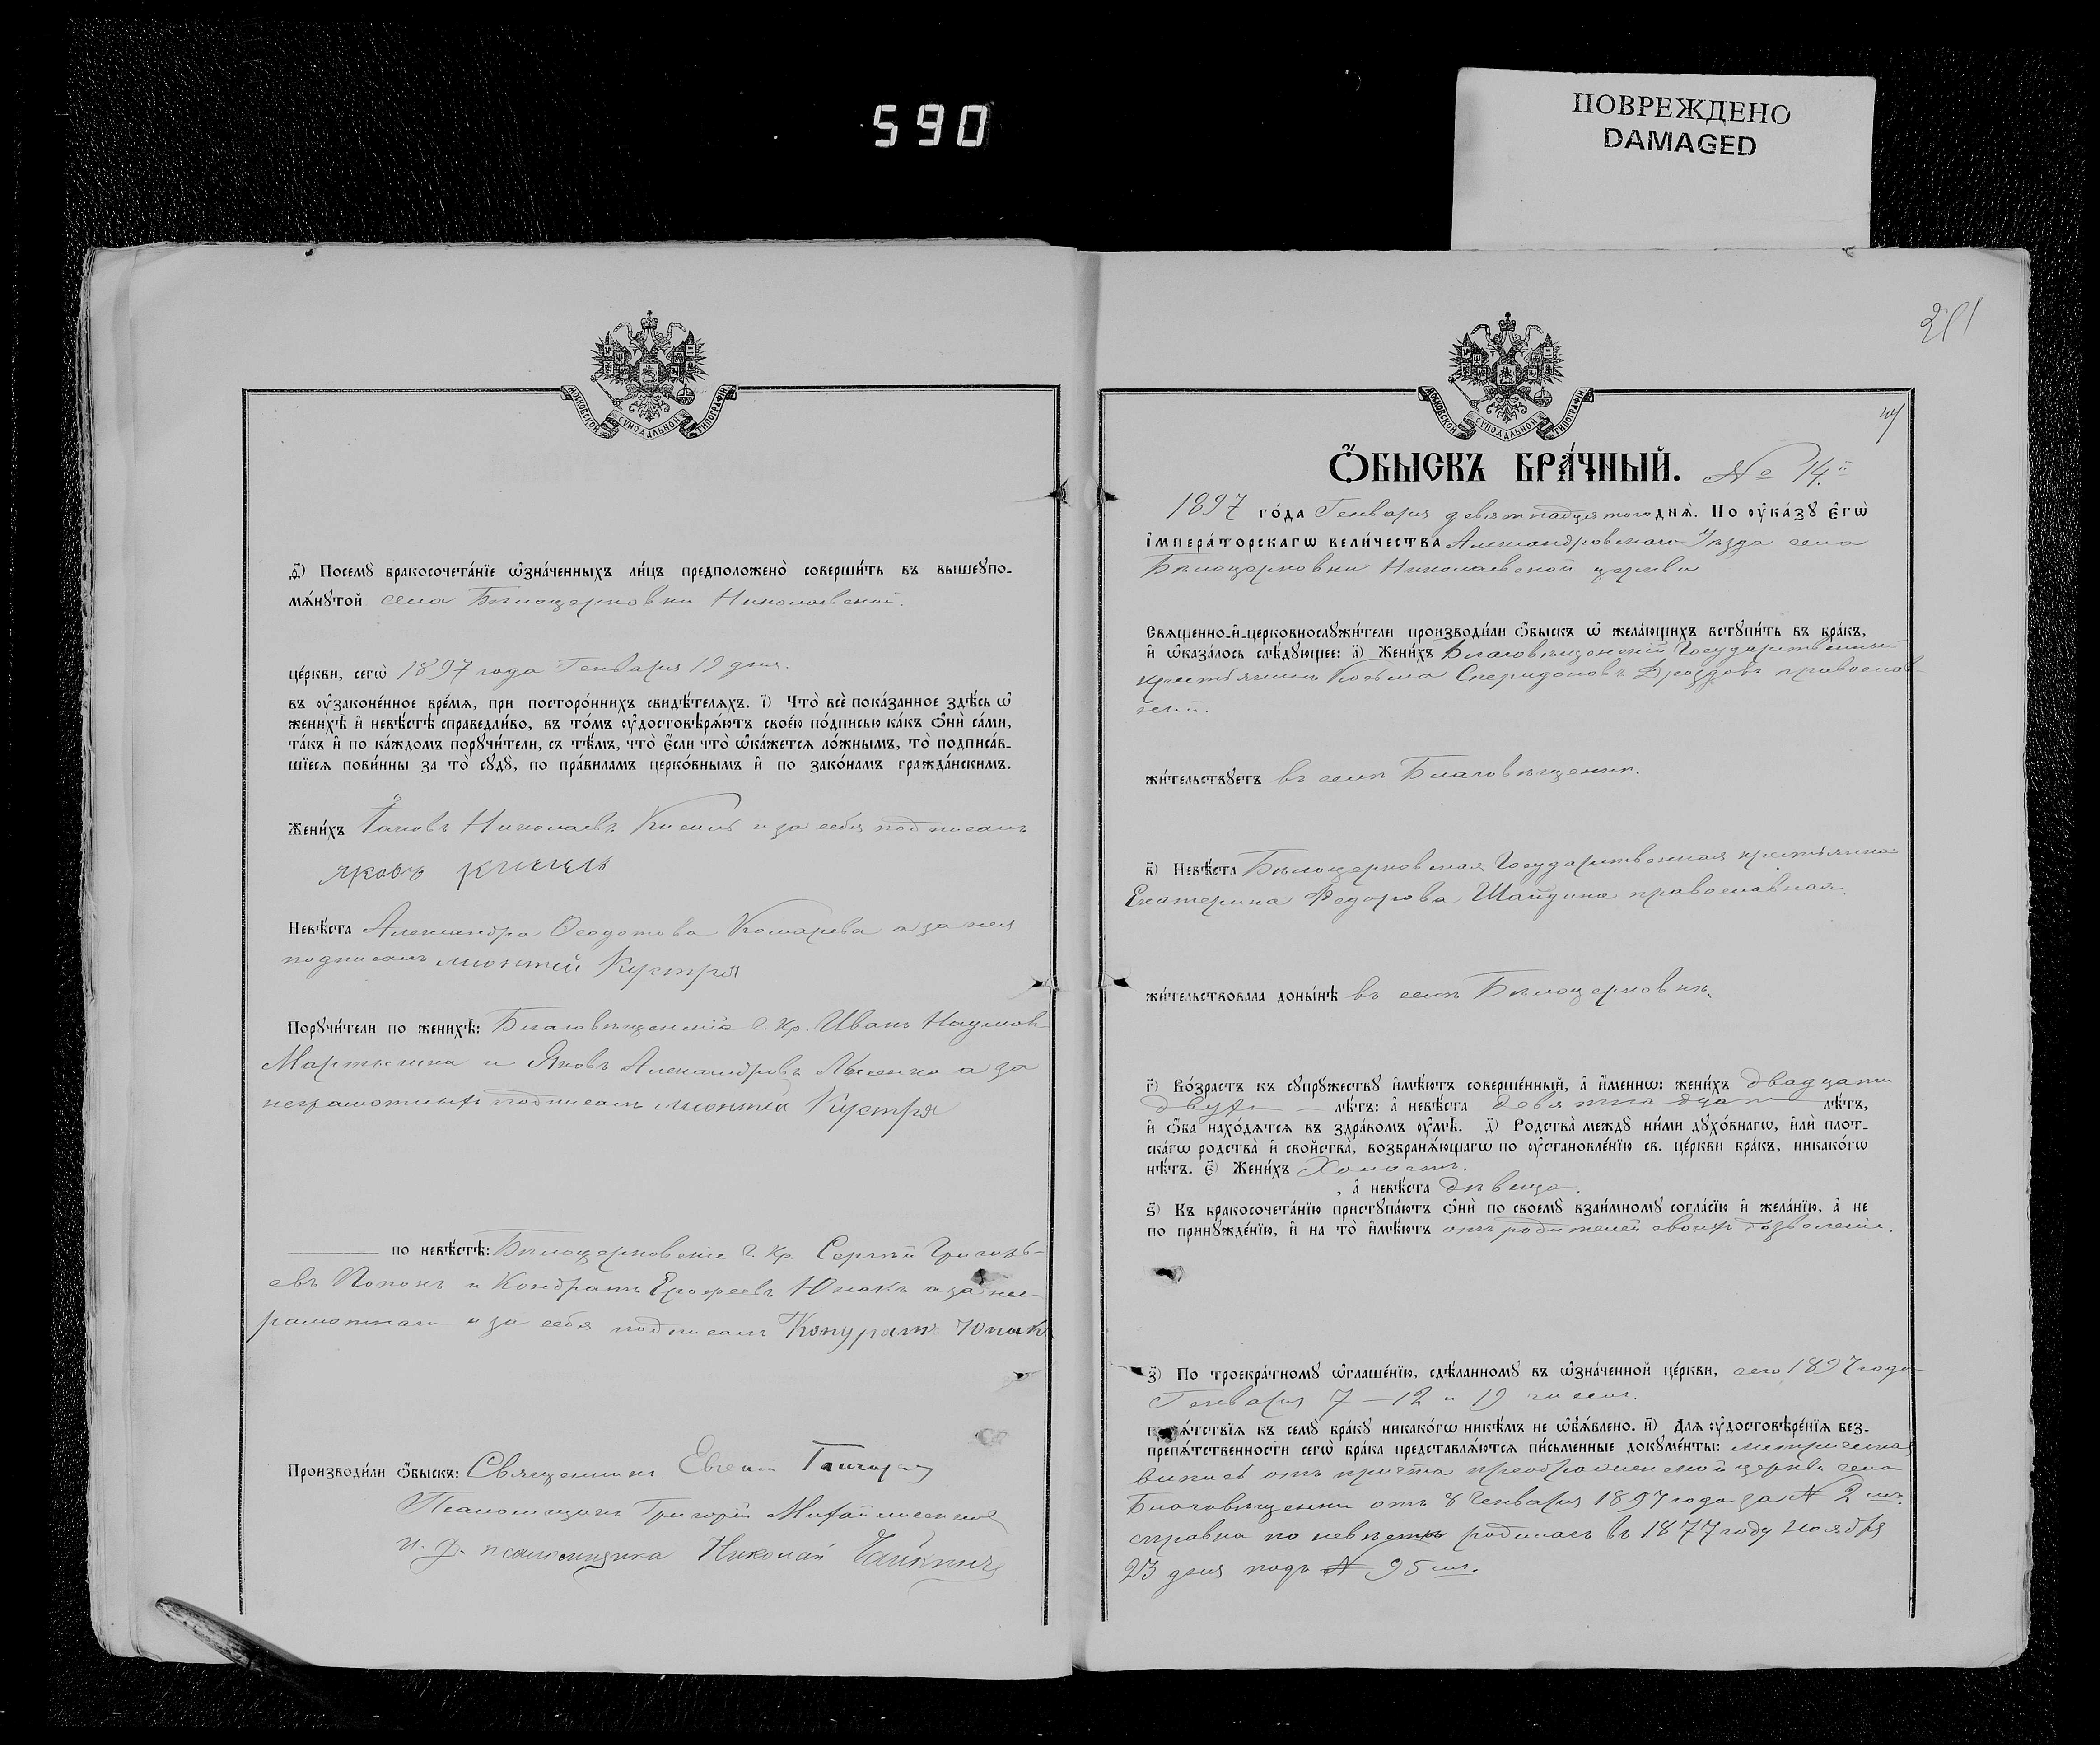 590
ПОВРЕЖДЕНО
DAMAGED
МОСКОВСКОЙ СѴНОДАЛЬНОЙ ТИПОГРАФІИ
ѳ҃) Посемꙋ бракосочета́нїе ѡ҆зна́ченныхъ ли́цъ предположено̀ соверши́ть въ вышеꙋпо-
мѧ́нꙋтой села Бѣлоцерковки Николаевской.
це́ркви, сегѡ̀ 1897 года Генваря 19 дня.
въ ᲂу҆зако́ненное вре́мѧ, при посторо́ннихъ свидѣ́телѧхъ. і҃) Что̀ всѐ пока́занное здѣ́сь ѡ҆
женихѣ̀ и҆ невѣ́стѣ справедли́во, въ то́мъ ᲂу҆достовѣрѧ́ютъ свое́ю по́дписью ка́къ ѻ҆нѝ са́ми,
та́къ и҆ по ка́ждомъ порꙋчи́тели, съ тѣ́мъ, что̀ є҆́сли что̀ ѡ҆ка́жетсѧ ло́жнымъ, то̀ подписа́в-
шїесѧ пови́нны за то̀ сꙋдꙋ̀, по пра́виламъ церко́внымъ и҆ по зако́намъ гражда́нскимъ.
Жени́хъ Іаковъ Николаевъ Кисиль и за себя подписалъ
яковъ
Невѣ́ста Александра Ѳеодотова Комарева а за нея
подписалъ Кустря
Порꙋчи́тели по женихѣ̀: Благовѣщенскіе г. кр. Иванъ Наумов
Мартынха и Яковъ Александровъ Лысенко а за
неграмотныхъ подписалъ Кустря
по невѣ́стѣ: Бѣлоцерковскіе г. кр. Сергѣй Григорь-
евъ Попокъ и Кондратъ Ерофеевъ Юнакъ а за нег-
рамотнаго и за себя подписалъ Кондратъ Юнакъ
Производи́ли ѻ҆́быскъ: Священникъ Евгеній
Псаломщикъ Григорій Михайличенко
и. д. псаломщика Николай
201
МОСКОВСКОЙ СѴНОДАЛЬНОЙ ТИПОГРАФІИ
Ѻ҆́БЫСКЪ БРА́ЧНЫЙ. № 14.й
1897 го́да Генваря девятнадцатого днѧ̀. По ᲂу҆ка́зꙋ Є҆гѡ̀
і҆мпера́торскагѡ вели́чества Александровскаго Уѣзда села
Бѣлоцерковки Николаевской церкви
Свѧщенно-и҆-церковнослꙋжи́тели производи́ли ѻ҆́быскъ ѡ҆ жела́ющихъ встꙋпи́ть въ бра́къ,
и҆ ѡ҆каза́лось слѣ́дꙋющее: а҃) Жени́хъ Благовѣщенскій Государственный
крестьянинъ Косьма Спиридоновъ Дроздовъ православ
ный.
жи́тельствꙋетъ въ селѣ Благовѣщенки.
в҃) Невѣ́ста Бѣлоцерковская Государственная крестьянка
Екатерина Федорова Шайдина православная.
жи́тельствовала доны́нѣ въ селѣ Бѣлоцерковкѣ.
г҃) Во́зрастъ къ сꙋпрꙋ́жествꙋ и҆мѣ́ютъ соверше́нный, а҆ и҆́менно: жени́хъ двадцати
двухъ – лѣ́тъ: а҆ невѣ́ста девятнадцати лѣ́тъ,
и҆ ѻ҆́ба нахо́дѧтсѧ въ здра́вомъ ᲂу҆мѣ̀. д҃) Родства̀ междꙋ ни́ми дꙋхо́внагѡ, и҆лѝ плот-
ска́гѡ родства̀ и҆ сво́йства, возбранѧ́ющагѡ по ᲂу҆становле́нїю св. це́ркви бра́къ, никако́гѡ
нѣ́тъ. є҃) Жени́хъ Холостъ.
, а҆ невѣ́ста дѣвица.
ѕ҃) Къ бракосочета́нїю пристꙋпа́ютъ ѻ҆нѝ по своемꙋ̀ взаи́мномꙋ согла́сїю и҆ жела́нїю, а҆ не
по принꙋжде́нїю, и҆ на то̀ и҆мѣ́ютъ отъ родителей своихъ дозволеніе.
з҃) По троекра́тномꙋ ѡ҆глаше́нїю, сдѣ́ланномꙋ въ ѡ҆зна́ченной це́ркви, сего 1897 года
Генваря 7 – 12 и 19 чиселъ.
препѧ́тствїѧ къ семꙋ̀ бра́кꙋ никако́гѡ никѣ́мъ не ѡ҆бъѧ́влено. и҃) Длѧ ᲂу҆достовѣре́нїѧ без-
препѧ́тственности сегѡ̀ бра́ка представлѧ́ютсѧ пи́сьменные докꙋме́нты: метрическа
выпись отъ причта преображенской церкви села
Благовѣщенки отъ 8 Генваря 1897 года за № 2 мъ.
справка по невѣстѣ родилась въ 1877 году Ноября
23 дня подъ № 95 мъ.